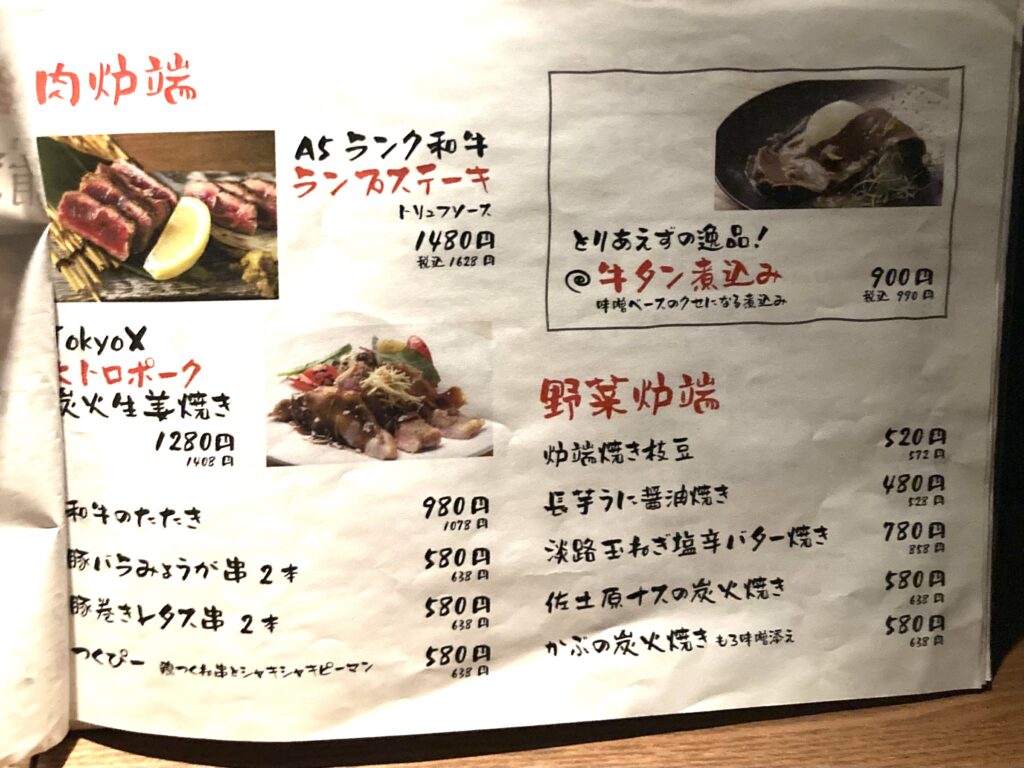 肉炉端
A5 ランク和牛
ランプステーキ
トリュフソース
1480円
税込 1628円
TokyoX
トロポーク
炭火生姜焼き
1280円
1408円
和牛のたたき 980円
1078円
豚バラみょうが串 2本 580円
638円
豚巻きレタス串 2本 580円
638円
つくぴー 鶏つくね串とシャキシャキピーマン 580円
638円
とりあえずの逸品!
牛タン煮込み 900円
味噌ベースのクセになる煮込み 税込 990円
野菜炉端
炉端焼き枝豆 520円
572円
長芋うに醤油焼き 480円
528円
淡路玉ねぎ塩辛バター焼き 780円
858円
佐土原ナスの炭火焼き 580円
638円
かぶの炭火焼き もろ味噌添え 580円
638円